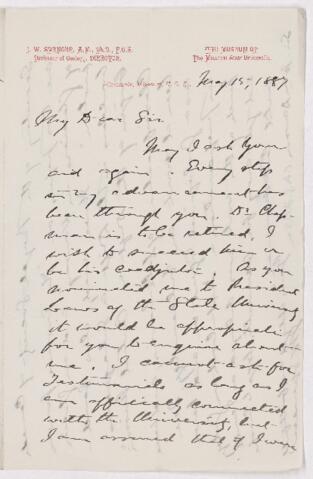 J. W. SPENCER, A.M., PH.D., F.G.S.
Professor of Geology, DIRECTOR.
THE MUSEUM OF
The Missouri State University.
Columbia, Missouri, U.S.A.,
May 15, 1887
My Dear Sir
May I ask you
and again. Every step
in my advancement has
been through you. Dr Chap-
man is to be retired, I
wish to succeed him or
be his coadjutor. As you
nominated me to President
Laws of the State University
it would be appropriate
for you to enquire about
me. I cannot ask for
Testimonials as long as I
am officially connected
with the University, but
I am assured that if I were